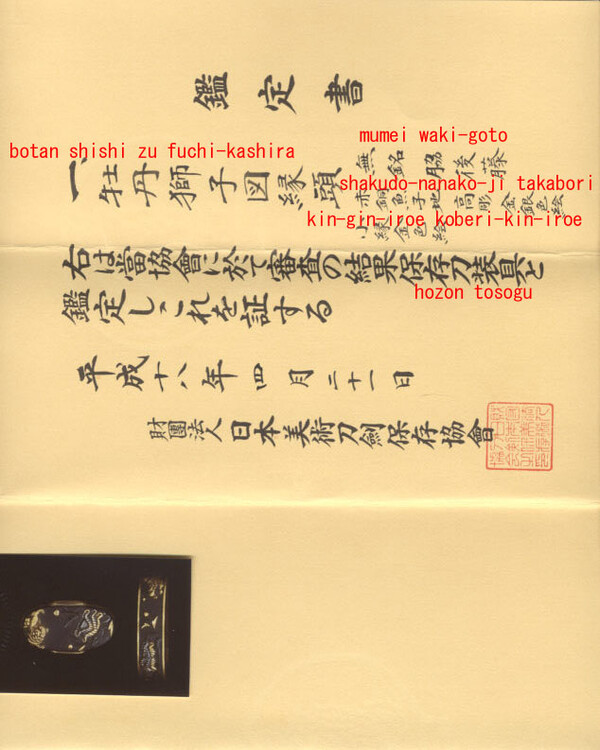 鑑定書
botan shishi zu fuchi-kashira
mumei waki-goto
一、牡丹獅子図縁頭
無銘 脇後藤
shakudo-nanako-ji takabori
赤銅魚子地高彫金銀色絵
kin-gin-iroe koberi-kin-iroe
小縁金色絵
右は當協會に於て審査の結果保存刀装具と
hozon tosogu
鑑定しこれを証する
平成十八年四月二十一日
財團法人日本美術刀劍保存協會